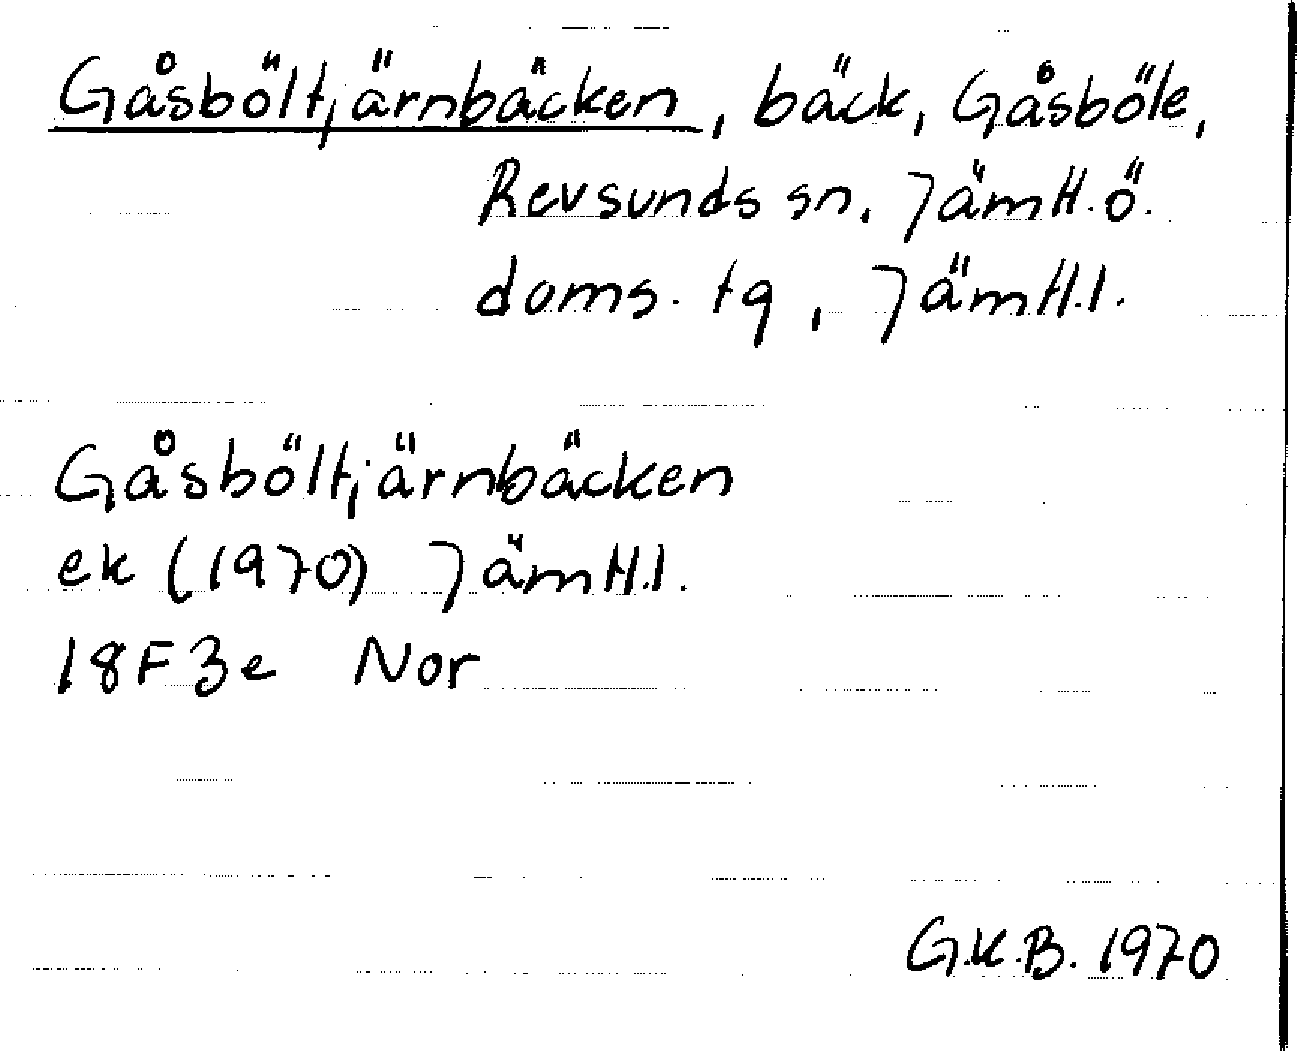 Gåsböltjärnbäcken, bäck, Gåsböle,
Revsunds sn. Jämtl. ö.
doms. tg, Jämtl. l.
Gåsböltjärnbäcken
ek (1970) Jämtl. l.
18F3e Nor
G.K.B. 1970